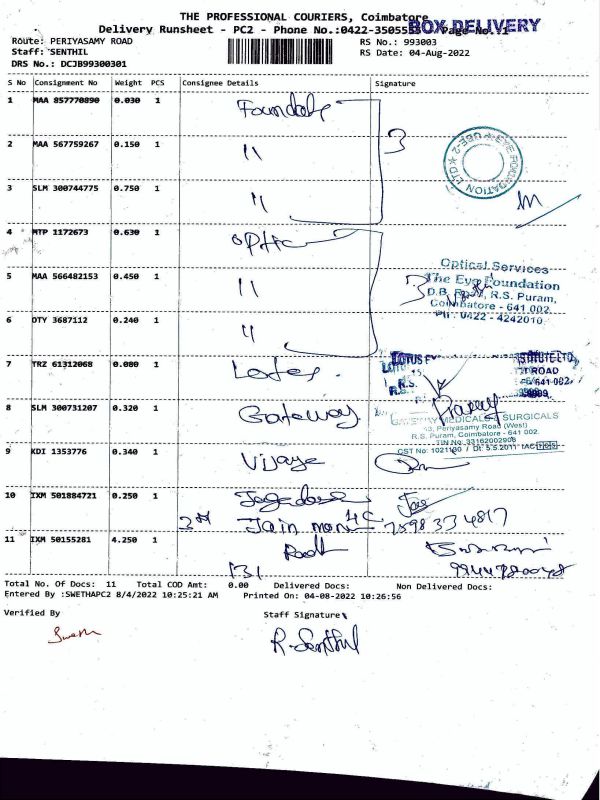 THE PROFESSIONAL COURIERS, Coimbatore
BOX DELIVERY
Delivery Runsheet - PC2 - Phone No.:0422-350555 Page No.:1
Route: PERIYASAMY ROAD
RS No.: 993003
Staff: SENTHIL
RS Date: 04-Aug-2022
DRS No.: DCJB99300301
S No Consignment No Weight PCS Consignee Details Signature
1 MAA 857770890 0.030 1
2 MAA 567759267 0.150 1 "
3 SLM 300744775 0.750 1 "
3
EYE FOUNDATION LTD
4 MTP 1172673 0.630 1 optic
5 MAA 566482153 0.450 1 "
6 DTY 3687112 0.240 1 "
3
Optical Services
The Eye Foundation
D.B. Road, R.S. Puram,
Coimbatore - 641 002.
PH : 0422 - 4242010
7 TRZ 61312068 0.080 1 Lotus
LOTUS EYE INSTITUTE LTD
ROAD
R.S.
641 002
8 SLM 300731207 0.320 1 Gateway
GATEWAY MEDICALS & SURGICALS
43, Periyasamy Road (West)
R.S. Puram, Coimbatore - 641 002.
TIN No: 33162002908
CST No: 1021160 / Dt: 5.5.2011
9 KDI 1353776 0.340 1 Vijaya
10 IXM 501884721 0.250 1
Jain
7598334817
11 IXM 50155281 4.250 1
131
Total No. Of Docs: 11 Total COD Amt: 0.00 Delivered Docs: Non Delivered Docs:
Entered By :SWETHAPC2 8/4/2022 10:25:21 AM Printed On: 04-08-2022 10:26:56
Verified By Staff Signature
Swetha
R. Senthil